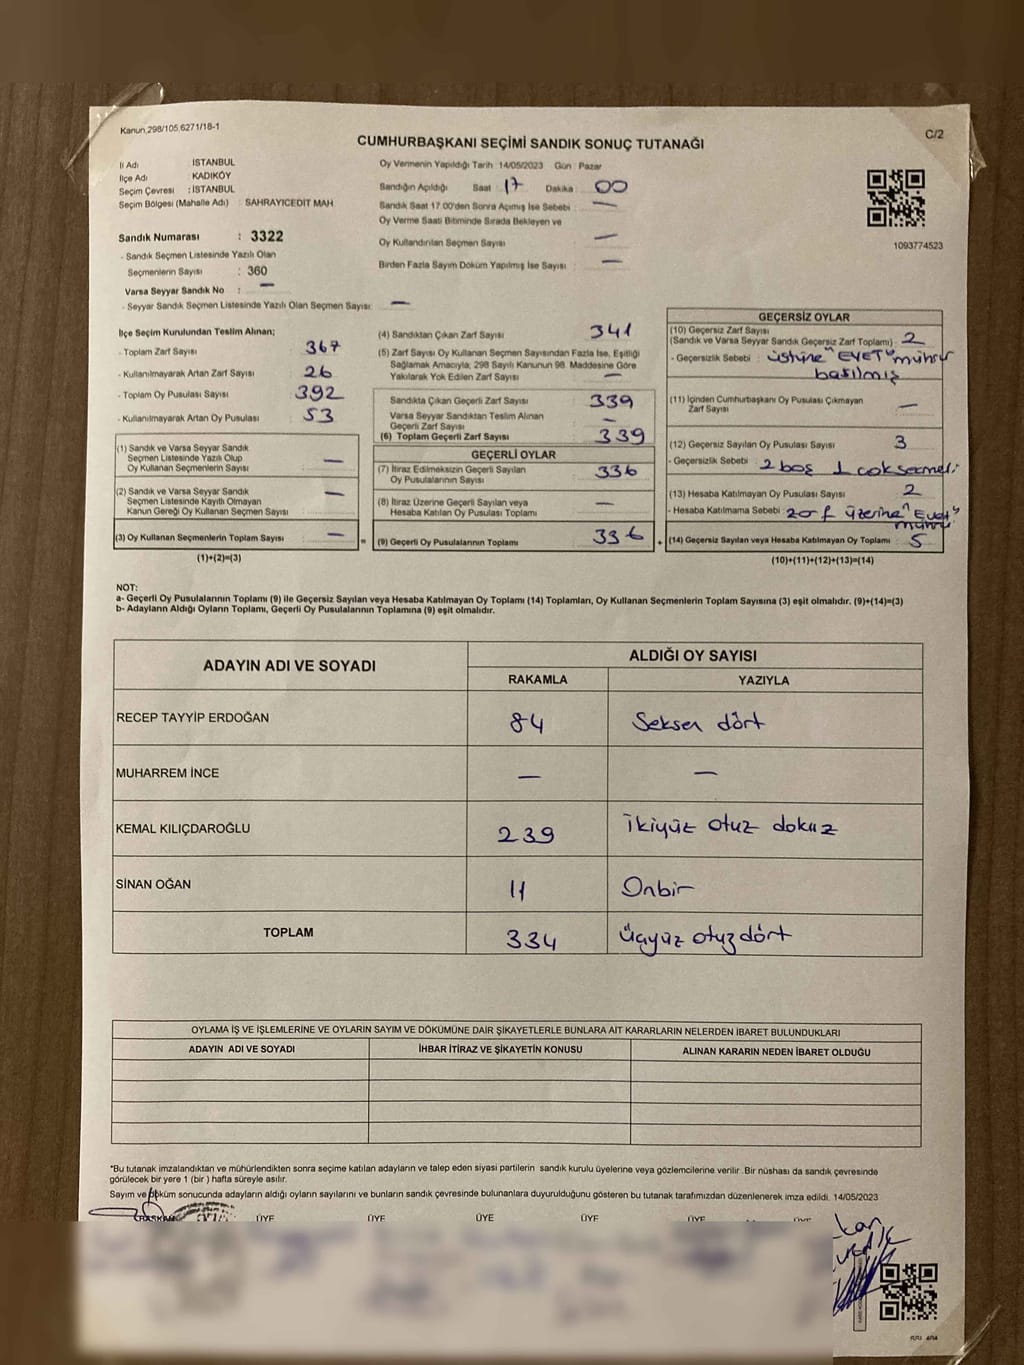 Kanun,298/105,6271/18-1
C/2
CUMHURBAŞKANI SEÇİMİ SANDIK SONUÇ TUTANAĞI
İl Adı İSTANBUL
İlçe Adı KADIKÖY
Seçim Çevresi : İSTANBUL
Seçim Bölgesi (Mahalle Adı) : SAHRAYICEDİT MAH
Sandık Numarası : 3322
- Sandık Seçmen Listesinde Yazılı Olan
Seçmenlerin Sayısı : 360
Varsa Seyyar Sandık No : —
- Seyyar Sandık Seçmen Listesinde Yazılı Olan Seçmen Sayısı: —
Oy Vermenin Yapıldığı Tarih 14/05/2023 Gün : Pazar
Sandığın Açıldığı Saat 17 Dakika 00
Sandık Saat 17.00'den Sonra Açımış İse Sebebi : —
Oy Verme Saati Bitiminde Sırada Bekleyen ve
Oy Kullandırılan Seçmen Sayısı —
Birden Fazla Sayım Döküm Yapılmış İse Sayısı : —
1093774523
İlçe Seçim Kurulundan Teslim Alınan;
- Toplam Zarf Sayısı 367
- Kullanılmayarak Artan Zarf Sayısı 26
- Toplam Oy Pusulası Sayısı 392
- Kullanılmayarak Artan Oy Pusulası 53
(1) Sandık ve Varsa Seyyar Sandık
Seçmen Listesinde Yazılı Olup
Oy Kullanan Seçmenlerin Sayısı —
(2) Sandık ve Varsa Seyyar Sandık
Seçmen Listesinde Kayıtlı Olmayan
Kanun Gereği Oy Kullanan Seçmen Sayısı —
(3) Oy Kullanan Seçmenlerin Toplam Sayısı —
(1)+(2)=(3)
=
(4) Sandıktan Çıkan Zarf Sayısı 341
(5) Zarf Sayısı Oy Kullanan Seçmen Sayısından Fazla İse, Eşitliği
Sağlamak Amacıyla; 298 Sayılı Kanunun 98. Maddesine Göre
Yakılarak Yok Edilen Zarf Sayısı —
Sandıkta Çıkan Geçerli Zarf Sayısı 339
Varsa Seyyar Sandıktan Teslim Alınan
Geçerli Zarf Sayısı —
(6) Toplam Geçerli Zarf Sayısı 339
GEÇERLİ OYLAR
(7) İtiraz Edilmeksizin Geçerli Sayılan
Oy Pusulalarının Sayısı 336
(8) İtiraz Üzerine Geçerli Sayılan veya
Hesaba Katılan Oy Pusulası Toplamı —
(9) Geçerli Oy Pusulalarının Toplamı 336
+
GEÇERSİZ OYLAR
(10) Geçersiz Zarf Sayısı
(Sandık ve Varsa Seyyar Sandık Geçersiz Zarf Toplamı) : 2
- Geçersizlik Sebebi : üstüne "EVET" mührü
basılmış
(11) İçinden Cumhurbaşkanı Oy Pusulası Çıkmayan
Zarf Sayısı —
(12) Geçersiz Sayılan Oy Pusulası Sayısı 3
- Geçersizlik Sebebi : 2 boş 1 çok seçmeli
(13) Hesaba Katılmayan Oy Pusulası Sayısı 2
- Hesaba Katılmama Sebebi : üzerine "Evet"
mührü
(14) Geçersiz Sayılan veya Hesaba Katılmayan Oy Toplamı 5
(10)+(11)+(12)+(13)=(14)
NOT:
a- Geçerli Oy Pusulalarının Toplamı (9) ile Geçersiz Sayılan veya Hesaba Katılmayan Oy Toplamı (14) Toplamları, Oy Kullanan Seçmenlerin Toplam Sayısına (3) eşit olmalıdır. (9)+(14)=(3)
b- Adayların Aldığı Oyların Toplamı, Geçerli Oy Pusulalarının Toplamına (9) eşit olmalıdır.
ADAYIN ADI VE SOYADI
ALDIĞI OY SAYISI
RAKAMLA YAZIYLA
RECEP TAYYİP ERDOĞAN 84 Seksen dört
MUHARREM İNCE — —
KEMAL KILIÇDAROĞLU 239 İkiyüz otuz dokuz
SİNAN OĞAN 11 Onbir
TOPLAM 334 Üçyüz otuzdört
OYLAMA İŞ VE İŞLEMLERİNE VE OYLARIN SAYIM VE DÖKÜMÜNE DAİR ŞİKAYETLERLE BUNLARA AİT KARARLARIN NELERDEN İBARET BULUNDUKLARI
ADAYIN ADI VE SOYADI İHBAR İTİRAZ VE ŞİKAYETİN KONUSU ALINAN KARARIN NEDEN İBARET OLDUĞU
*Bu tutanak imzalandıktan ve mühürlendikten sonra seçime katılan adayların ve talep eden siyasi partilerin sandık kurulu üyelerine veya gözlemcilerine verilir .Bir nüshası da sandık çevresinde
görülecek bir yere 1 (bir ) hafta süreyle asılır.
Sayım ve döküm sonucunda adayların aldığı oyların sayılarını ve bunların sandık çevresinde bulunanlara duyurulduğunu gösteren bu tutanak tarafımızdan düzenlenerek imza edildi. 14/05/2023
BAŞKAN ÜYE ÜYE ÜYE ÜYE ÜYE ÜYE